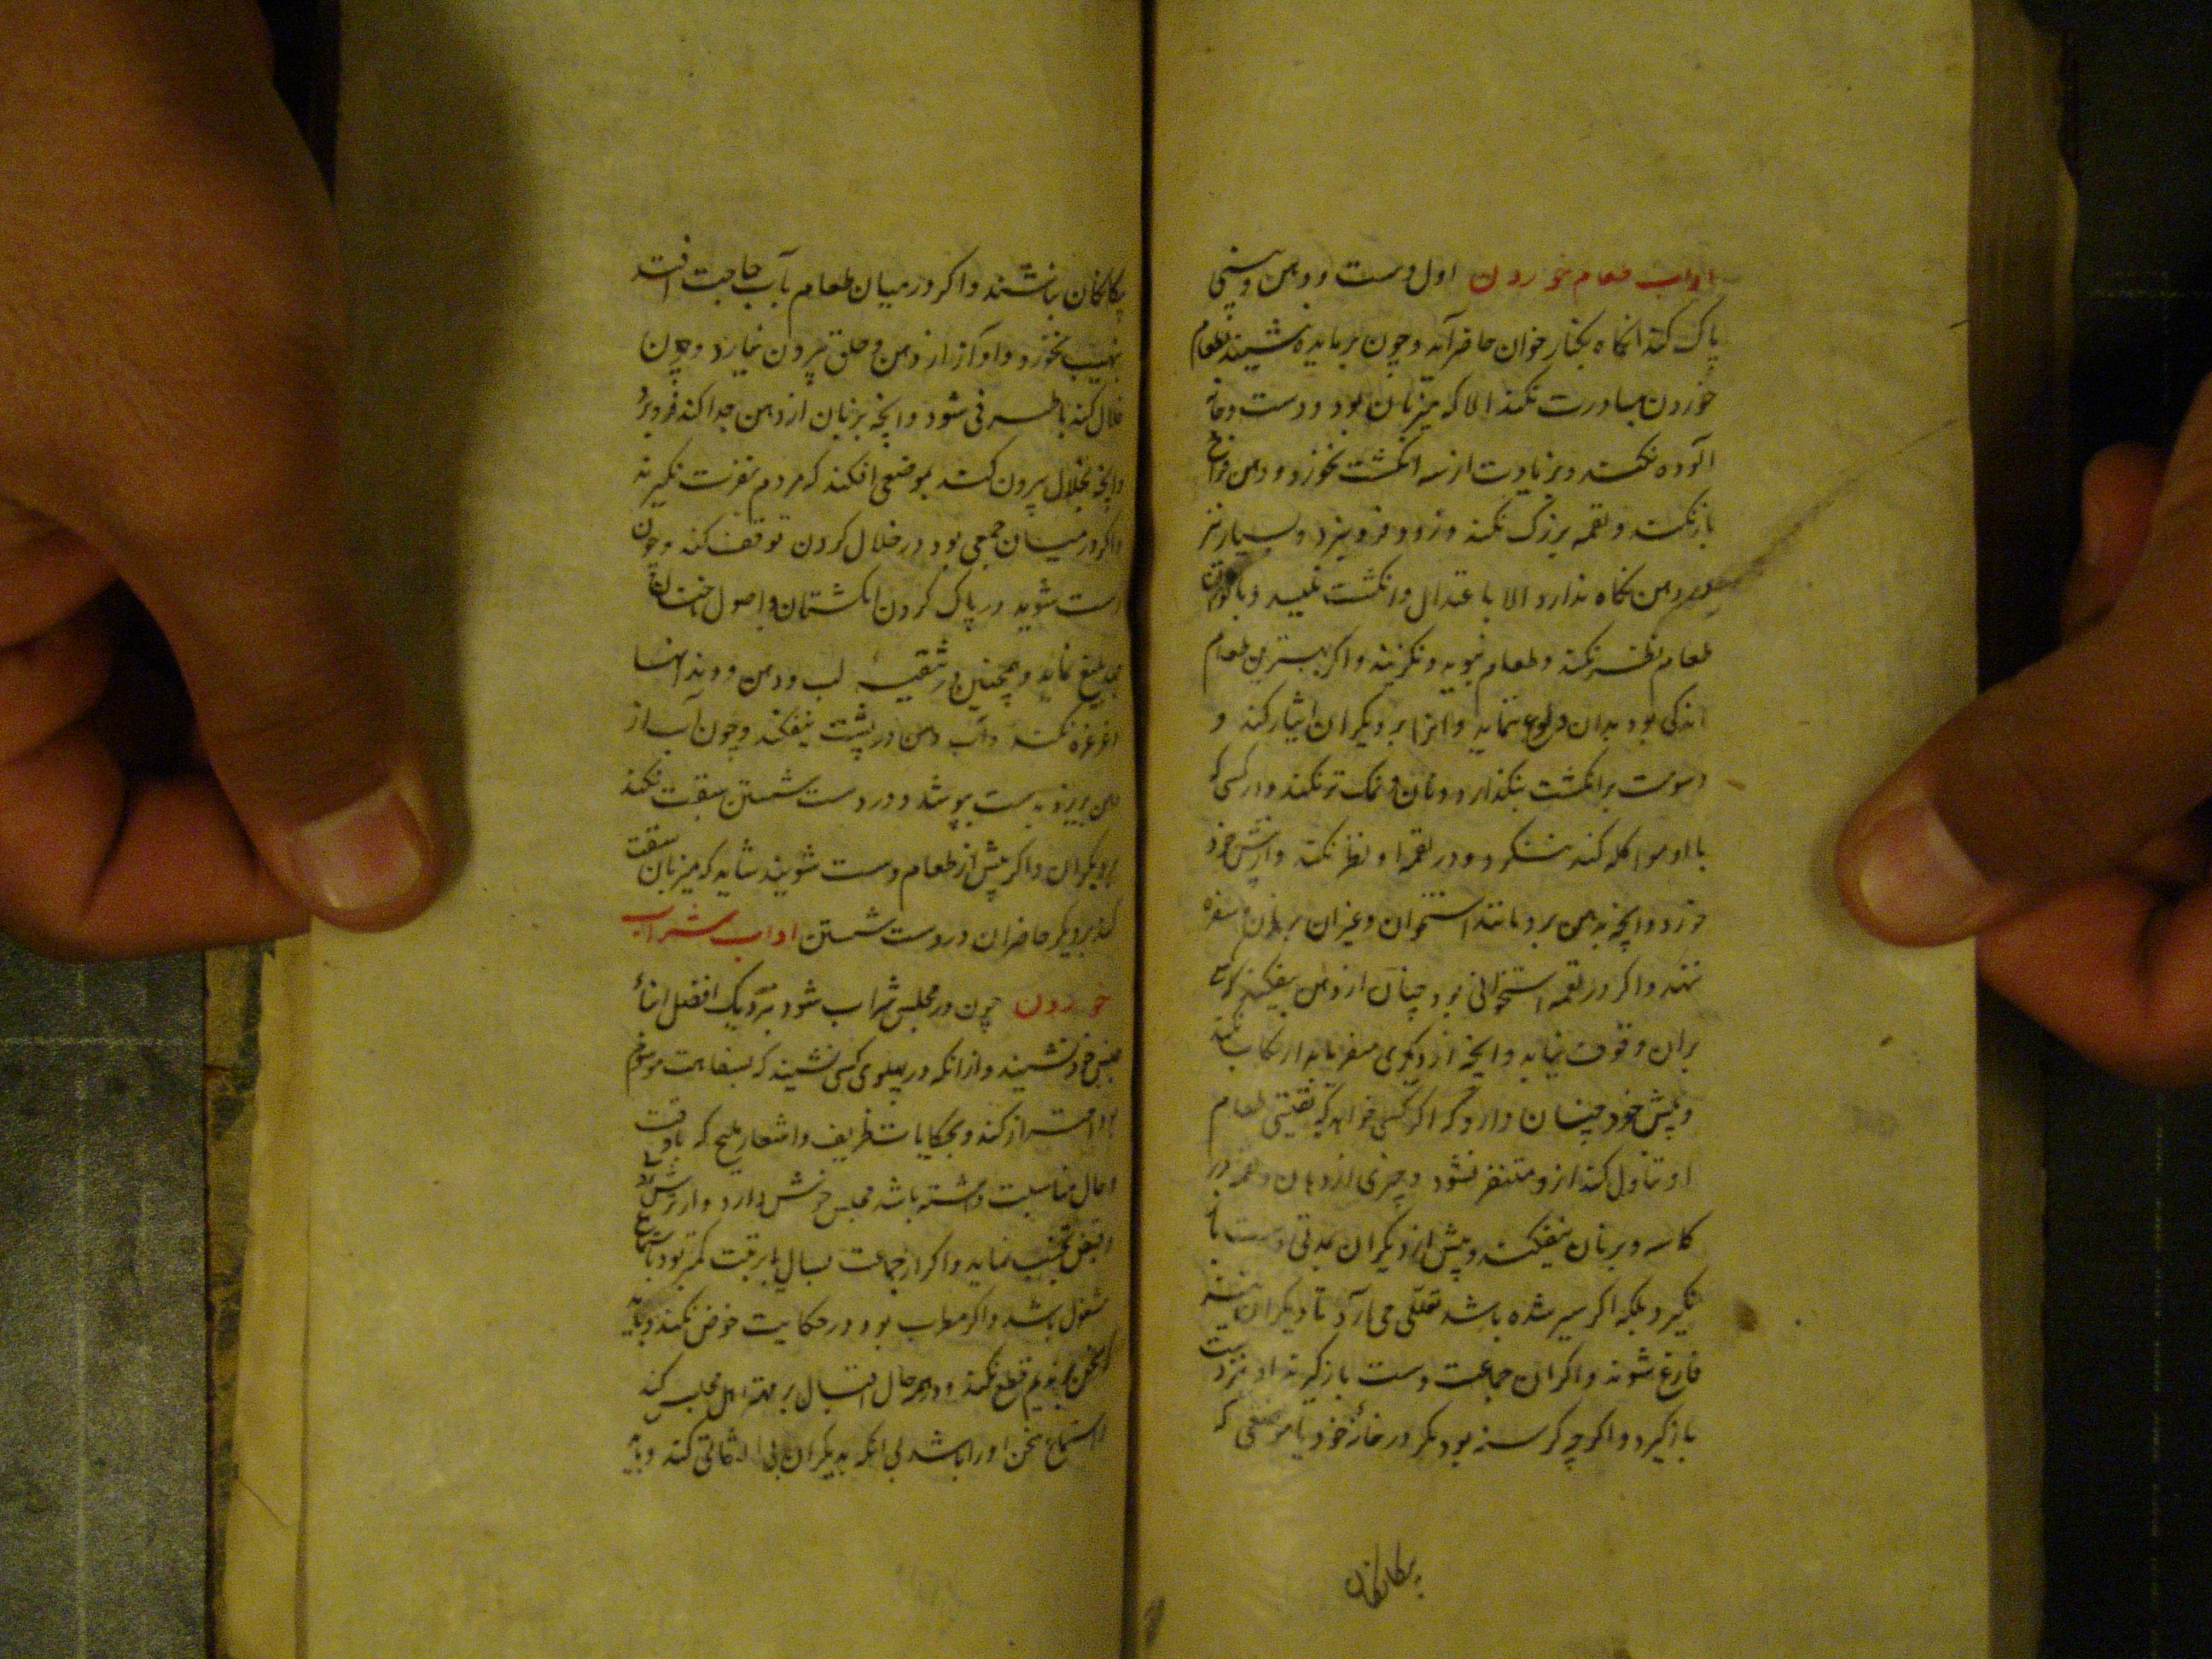 اداب طعام خوردن اول دست و دهن و بینی
پاک کند انکاه بکنار خوان حاضر آید و چون بر مایده نشیند بطعام
خوردن مبادرت نکند الا که میزبان بود و دست و جامه
آلوده نکند و بزیادت از سه انکشت نخورد و دهن فراخ
باز نکند و لقمه بزرک نکند و زود فرو نبرد و بسیار نیز
در دهن نکاه ندارد الا باعتدال و انکشت نلیسد و بالوان
طعام نظر نکند و طعام نبوید و نکزیند و اکر بهترین طعام
اندکی بود بدان ولوع ننماید و انرا بر دیکران ایثار کند و
دسومت بر انکشت بنکذارد و نان و نمک تر نکند و در کسی که
با او مواکله کند ننکرد و در لقمه او نظر نکند و از پیش خود
خورد و انچه بدهن برد مانند استخوان و غیر ان بر نان و سفره
ننهد و اکر در لقمه استخوانی بود چنان از دهن بیفکند که کسی
بران وقوف نیابد و انچه از دیکری منفر یابد ارتکاب نکند
و پیش خود چنان دارد که اکر کسی خواهد که بقیتی طعام
او تناول کند ازو متنفر نشود و چیزی از دهان و لقمه در
کاسه و بر نان نیفکند و پیش از دیکران بمدتی دست باز
نکیرد بلکه اکر سیر شده باشد تعللی می آرد تا دیکران نیز
فارغ شوند و اکر ان جماعت دست باز کیرند او نیز دست
باز کیرد و اکر چه کرسنه بود مکر در خانه خود یا موضعی که
بیکانکان
بیکانکان نباشند و اکر در میان طعام بآب حاجت افتد
بنهیب نخورد و آواز از دهن و حلق بیرون نیارد و چون
خلال کند با طرفی شود و انچه بزبان از دهن جدا کند فرو برد
و انچه بخلال بیرون کند بموضعی افکند که مردم نفرت نکیرند
و اکر در میان جمعی بود در خلال کردن توقف کند و چون
دست شوید در پاک کردن انکشتان و اصول ناخنان
جهد بلیغ نماید و همچنین در تنقیه لب و دهن و دندانها
و غرغره نکند و آب دهن در طشت نیفکند و چون آب از
دهن بریزد بدست بپوشد و در دست شستن سبقت نکند
بر دیکران و اکر پیش از طعام دست شویند شاید که میزبان سبقت
کند بر دیکر حاضران در دست شستن اداب شراب
خوردن چون در مجلس شراب شود بنزدیک افضل ابناء
جنس خود نشیند و از انکه در پهلوی کسی نشیند که بسفاهت موسوم
بود احتراز کند و بحکایات ظریف و اشعار ملیح که با وقت
و حال مناسبت داشته باشد مجلس خوش دارد و از ترش رویی
و قبض تجنب نماید و اکر از جماعت بسال یا برتبت کمتر بود باستماع
مشغول باشد و اکر مطرب بود در حکایت خوض نکند و باید
که سخن ندیم قطع نکند و در همه حال اقبال بر مهتر اهل مجلس کند
و استماع سخن او را باشد بی انکه بدیکران بی التفاتی کند و باید